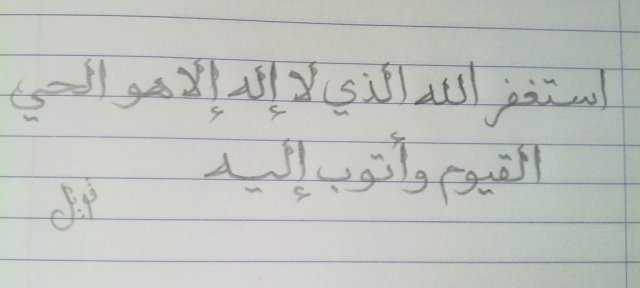 استغفر الله الذي لا إله إلا هو الحي
القيوم وأتوب إليه